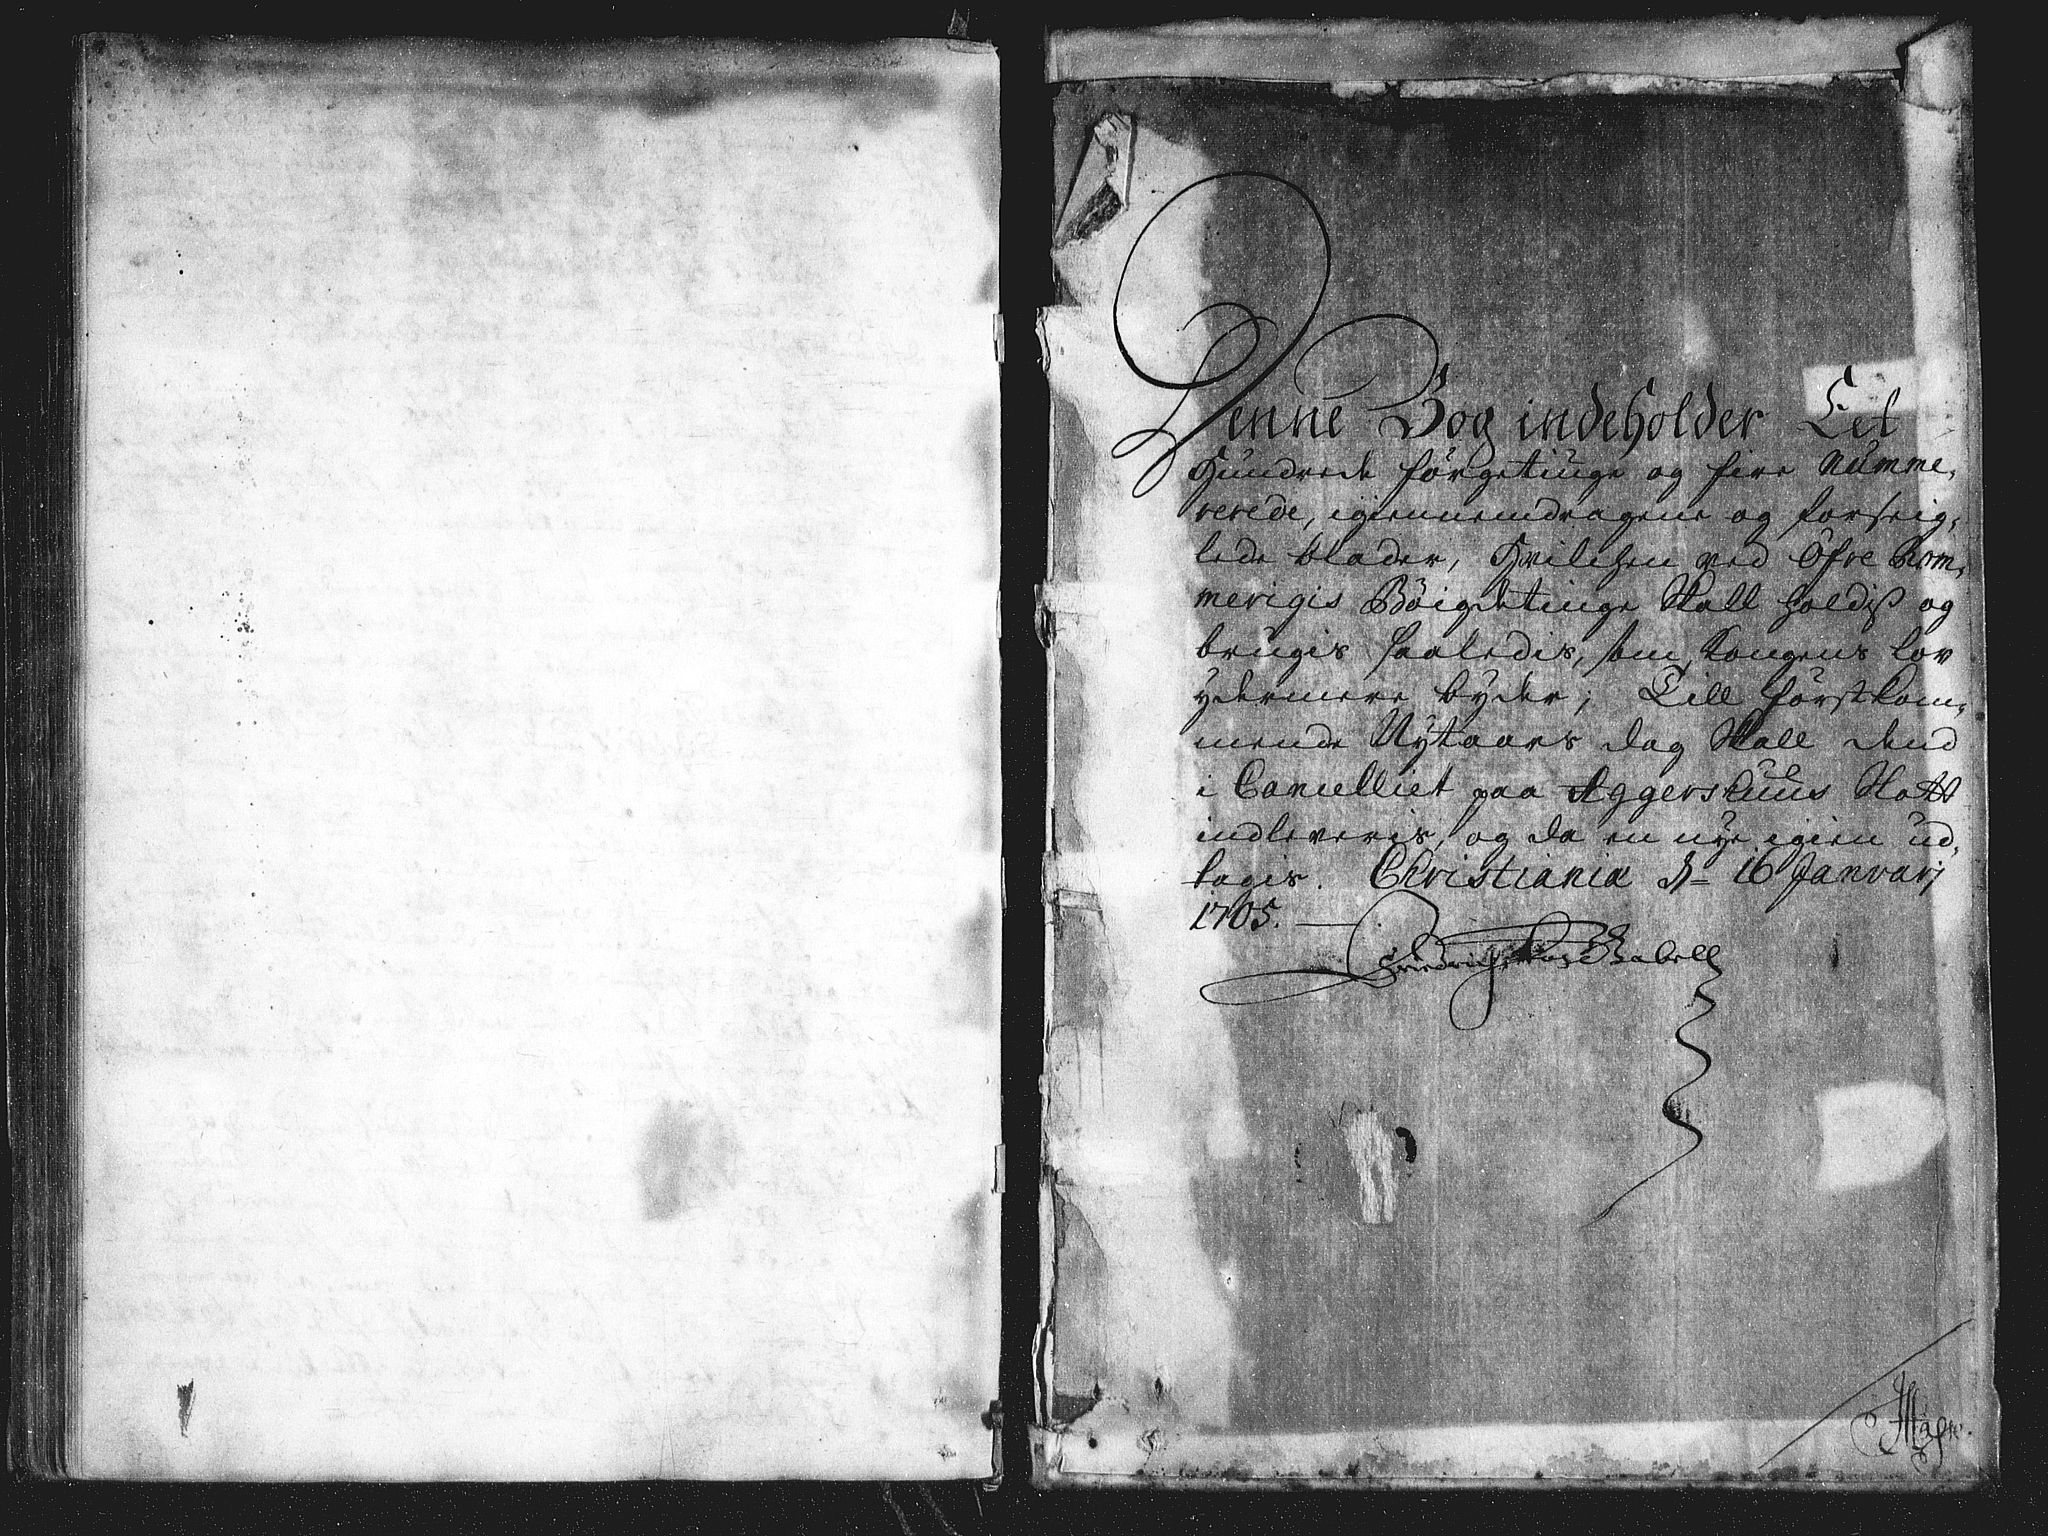 Denne Bog indeholder Eet
Hundrede førgetiuge og fire Numme,
rerede, igiennemdragene og forseig,
lede blader, Hvilchen ved Öfre Rom,
merigis Böigdetinge Skall holdis og
brugis saaledis, som Kongens Lov
ydermere byder; Till førstkom,
mende Nÿtaars dag Skall dend
i Cancelliet paa Aggershuus Slott
indleveris, og da en nye igien ud,
tagis. Christiania d= 16 Januarj
1705.
Gabell